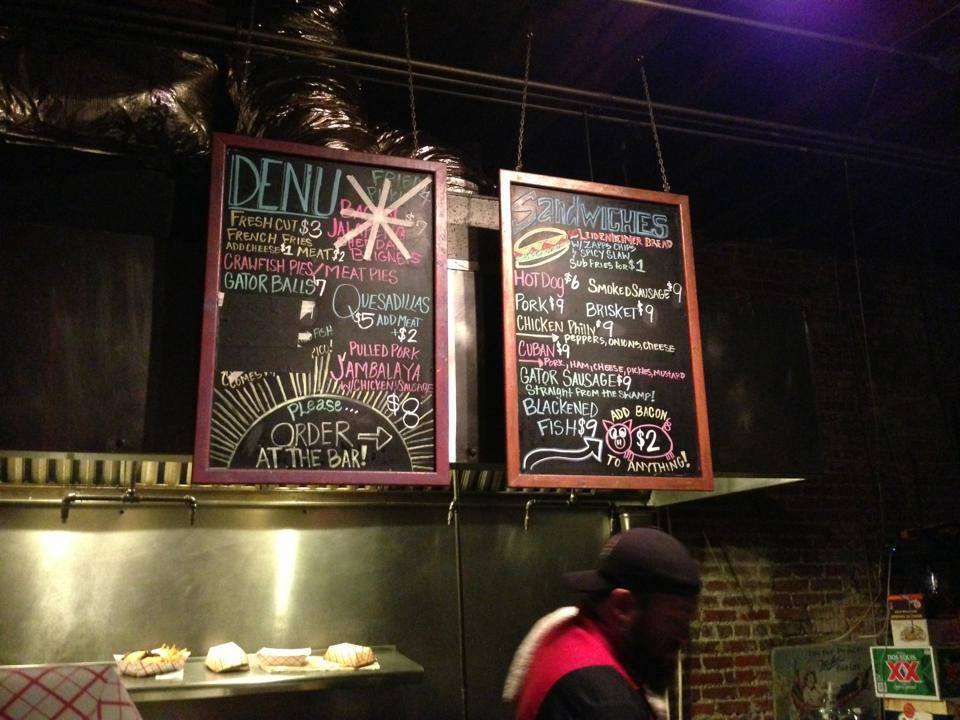 DENU
FRIED
FRESH CUT $3
FRENCH FRIES
ADD CHEESE $1 MEAT $2
CRAWFISH PIES/MEAT PIES
GATOR BALLS 7
QUESADILLAS
$5 ADD MEAT
+$2
FISH
PULLED PORK
JAMBALAYA
W/CHICKEN, SAUSAGE
$8
PLEASE...
ORDER
AT THE BAR!
SandWICHES
LEIDENHEIMER BREAD
W/ ZAPP'S CHIPS
& SPICY SLAW
SUB FRIES FOR $1
HOT DOG $6
SMOKED SAUSAGE $9
PORK $9
BRISKET $9
CHICKEN PHILLY $9
PEPPERS, ONIONS, CHEESE
CUBAN $9
PORK, HAM, CHEESE, PICKLES, MUSTARD
GATOR SAUSAGE $9
STRAIGHT FROM THE SWAMP!
BLACKENED
FISH $9
ADD BACON
$2
TO ANYTHING!
DOS EQUIS
XX